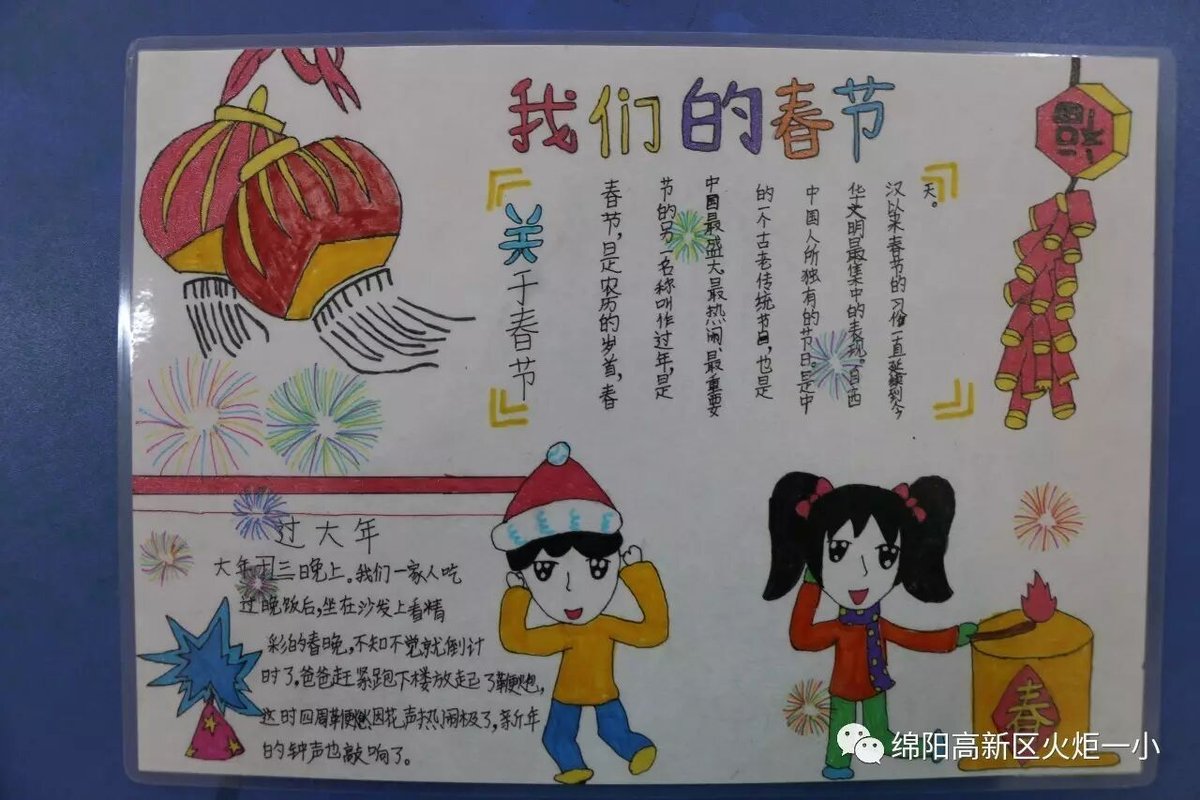 我们的春节
福
关于春节
春节，是农历的岁首，春
节的另一名称叫作过年，是
中国最盛大、最热闹、最重要
的一个古老传统节日，也是
中国人所独有的节日。是中
华文明最集中的表现。自西
汉以来春节的习俗一直延续到今
天。
过大年
大年三日晚上。我们一家人吃
过晚饭后，坐在沙发上看精
彩的春晚，不知不觉就倒计
时了。爸爸赶紧跑下楼放起了鞭炮，
这时四周鞭花声热闹极了，新年
的钟声也敲响了。
春
绵阳高新区火炬一小